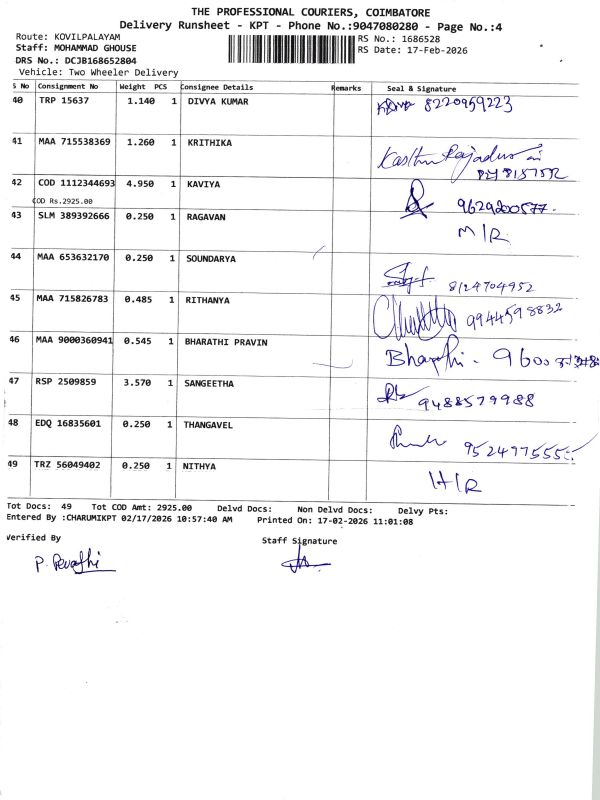 THE PROFESSIONAL COURIERS, COIMBATORE
Delivery Runsheet - KPT - Phone No.:9047080280 - Page No.:4
Route: KOVILPALAYAM
RS No.: 1686528
Staff: MOHAMMAD GHOUSE
RS Date: 17-Feb-2026
DRS No.: DCJB168652804
Vehicle: Two Wheeler Delivery
S No Consignment No Weight PCS Consignee Details Remarks Seal & Signature
40 TRP 15637 1.140 1 DIVYA KUMAR 8220959223
41 MAA 715538369 1.260 1 KRITHIKA
42 COD 1112344693 4.950 1 KAVIYA 9629200577
COD Rs.2925.00
43 SLM 389392666 0.250 1 RAGAVAN M/R
44 MAA 653632170 0.250 1 SOUNDARYA 8124704952
45 MAA 715826783 0.485 1 RITHANYA 9944598832
46 MAA 9000360941 0.545 1 BHARATHI PRAVIN Bharathi - 9600
47 RSP 2509859 3.570 1 SANGEETHA 9488579988
48 EDQ 16835601 0.250 1 THANGAVEL
49 TRZ 56049402 0.250 1 NITHYA H/R
Tot Docs: 49 Tot COD Amt: 2925.00 Delvd Docs: Non Delvd Docs: Delvy Pts:
Entered By :CHARUMIKPT 02/17/2026 10:57:40 AM Printed On: 17-02-2026 11:01:08
Verified By Staff Signature